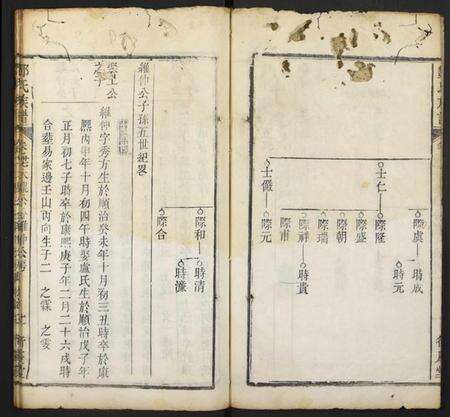 士仁
士儼
際虞
際隆
際盛
際朝
際瑞
際祥
際甫
際元
時成
時元
時貴
際和
際合
時清
時濂
維仲公子孫五世紀畧
學上公
維仲字秀方生於順治癸未年十月初三丑時卒於康
熙丙申年十月初四午時娶盧氏生於順治戊子年
正月初七子時卒於康熙庚子年二月二十六戌時
合塟易家邊王山丙向生子二 之霖 之雯